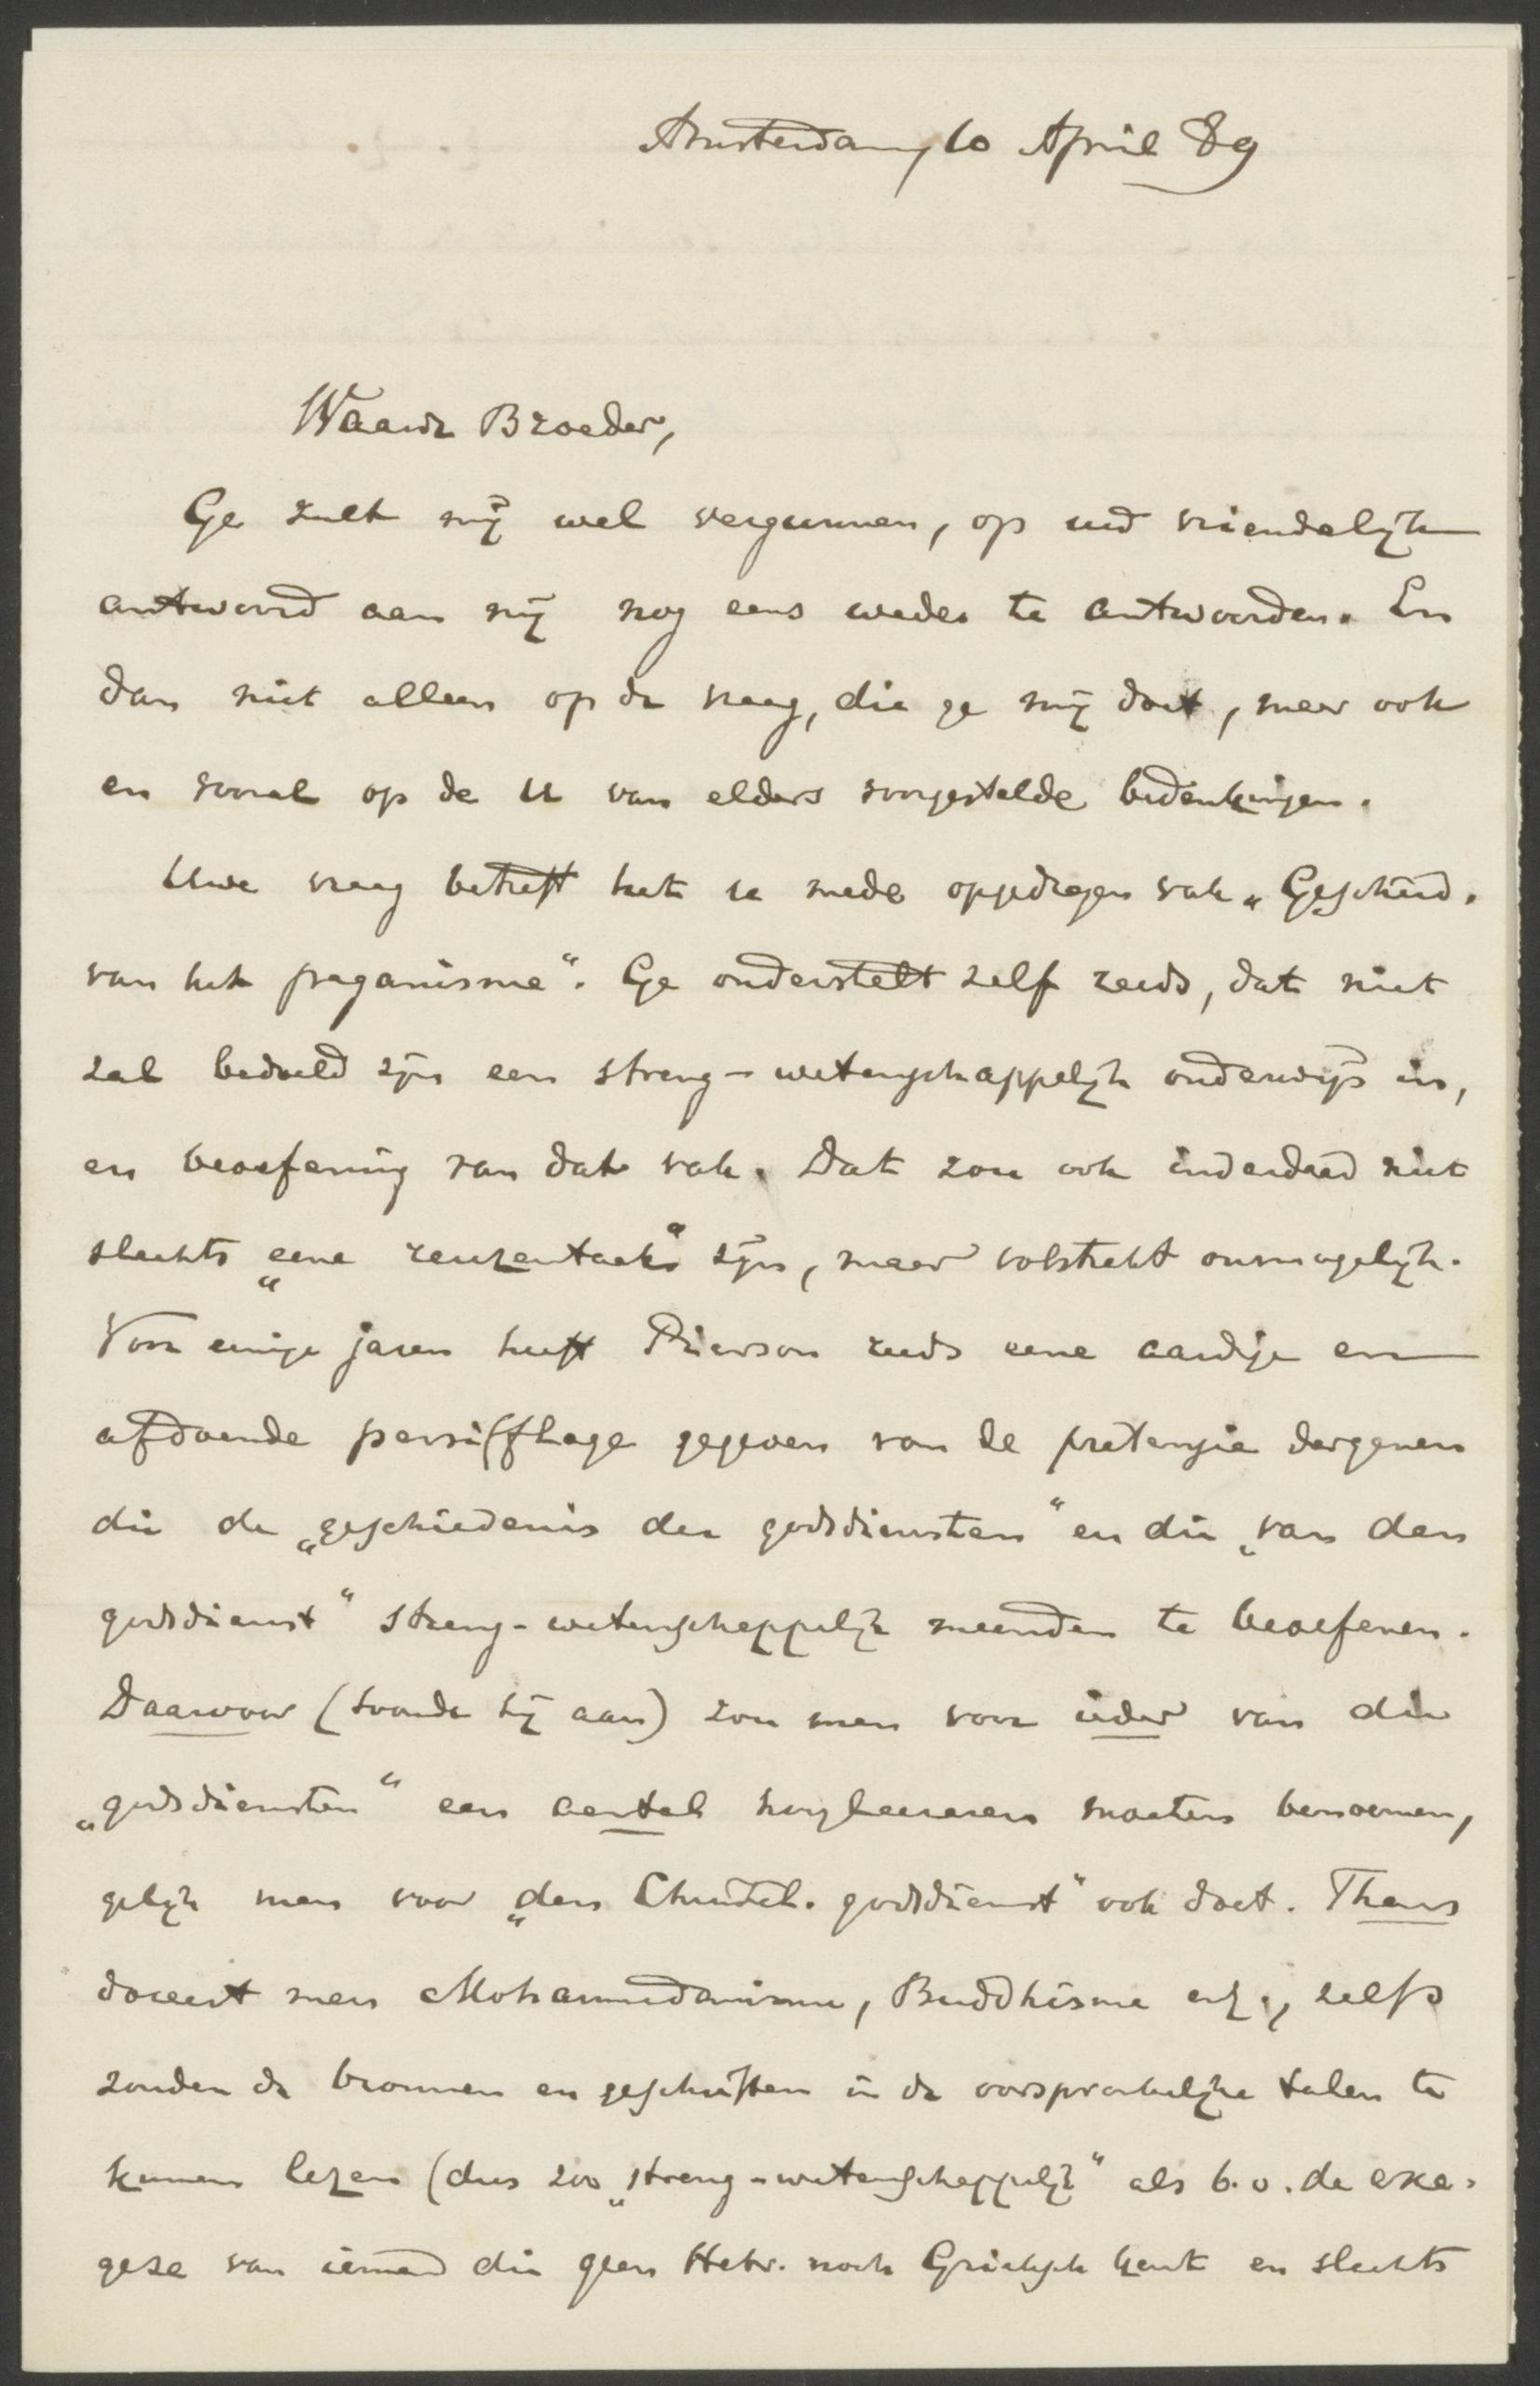 Amsterdam, 10 April 89
Waarde Broeder,
Ge zult mij wel vergunnen, op uw vriendelijk
antwoord aan mij nog eens weder te antwoorden. En
dan niet alleen op de vraag, die ge mij doet, maar ook
en vooral op de u van elders voorgestelde bedenkingen.
Uwe vraag betreft het u mede opgedragen vak „Geschied.
van het paganisme“. Ge onderstelt zelf reeds, dat niet
zal bedoeld zijn een streng-wetenschappelijk onderwijs in,
en beoefening van dat vak. Dat zou ook inderdaad niet
slechts „eene reuzentaak“ zijn, maar volstrekt onmogelijk.
Voor eenige jaren heeft Pierson reeds eene aardige en
afdoende persifflage gegeven van de pretensie dergenen
die de „geschiedenis der godsdiensten“ en die „van den
godsdienst“ streng-wetenschappelijk meenden te beoefenen.
Daarvoor (toonde hij aan) zou men voor ieder van die
„godsdiensten“ een aantal hoogleeraren moeten benoemen,
gelijk men voor „den Christel. godsdienst“ ook doet. Thans
doceert men Mohammedanisme, Buddhisme enz., zelfs
zonder de bronnen en geschriften in de oorspronkelijke talen te
kunnen lezen (dus zoo „streng-wetenschappelijk“ als b.v. de exe-
gese van iemand die geen Hebr. noch Grieksch kent en slechts